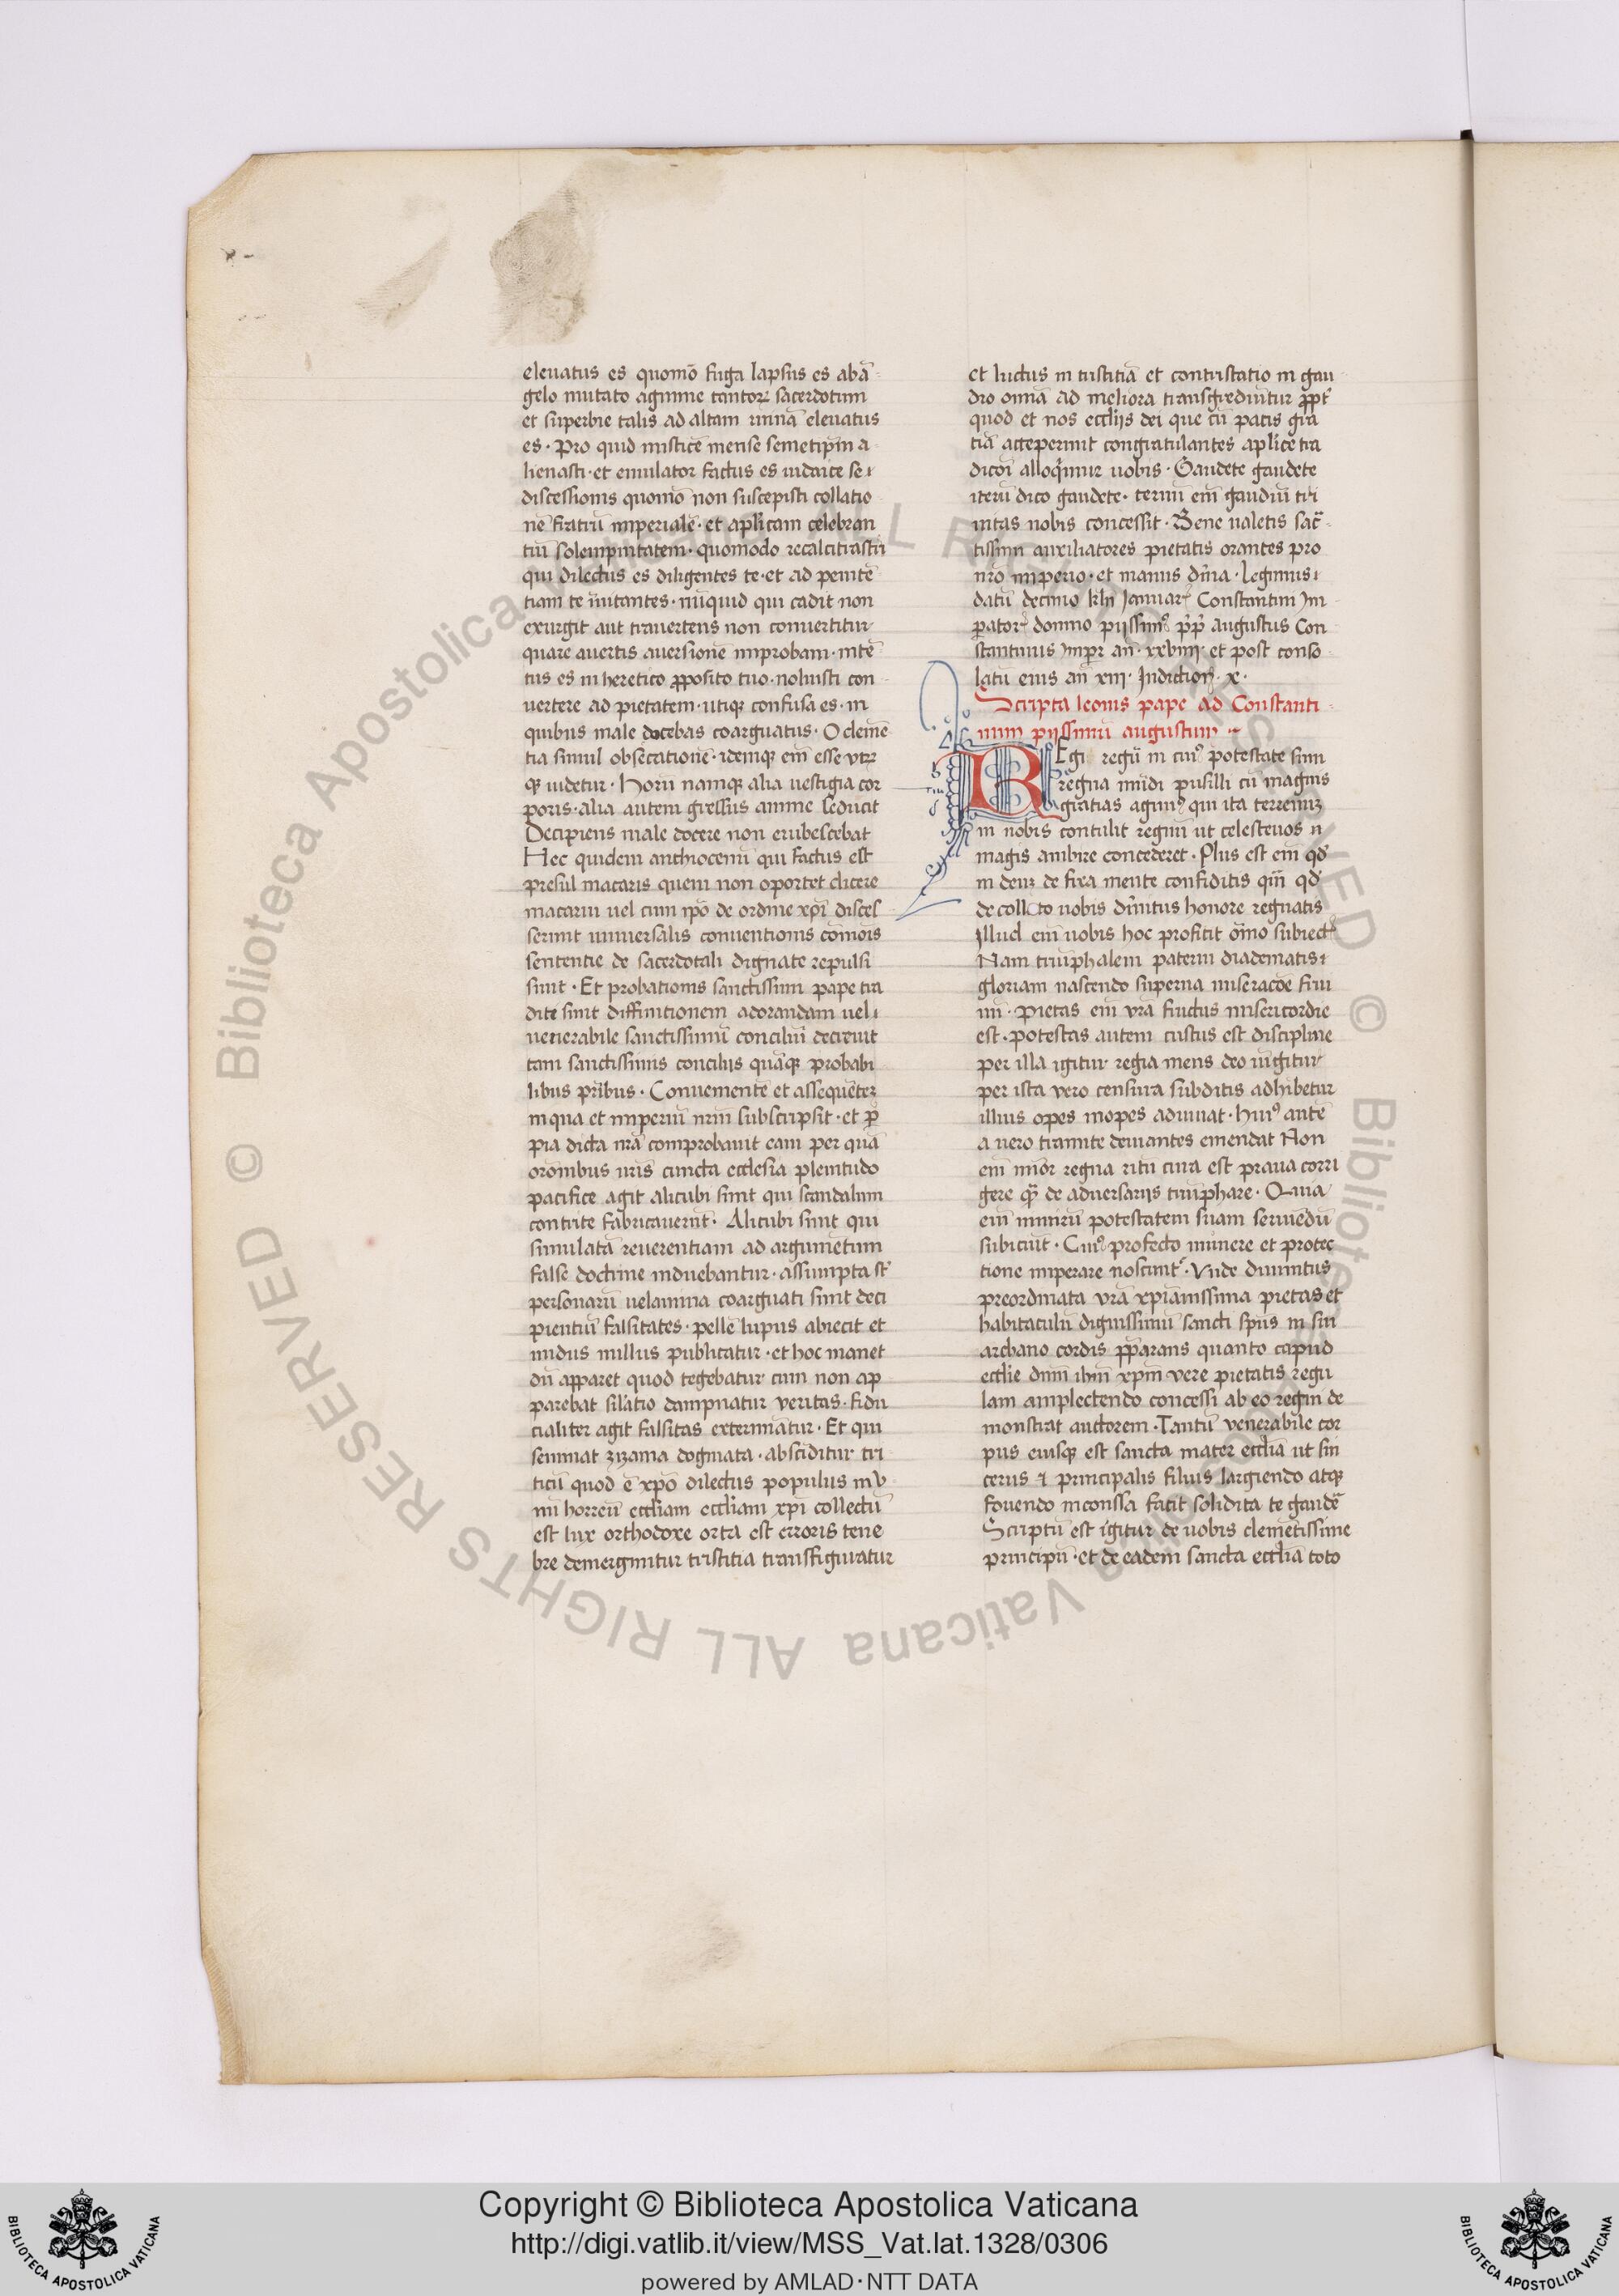 eleuatus es quomō fuga lapsus es abā
gelo mutato agmine tantoꝝ sacerdotum
et superbie talis ad altam ruinā eleuatus
es · Pro quid mistice mense semetip̄m a
lienasti · et emulator factus es iudaice se
discessionis quomō non suscepisti collatio
nē fratrū imperialē · et ap̄licam celebran
tiū solempnitatem · quomodo recalcitrasti
qui dilectus es diligentes te · et ad penitē
tiam te īuitantes · nūquid qui cadit non
exurgit aut trauertens non conuertitur
quare auertis auersionē improbam · intē
tus es in heretico ꝓposito tuo · noluisti con
uertere ad pietatem · utiqꝫ confusa es · in
quibus male docebas coarguatus · O clemē
tia simul obsecationē · idemqꝫ em̄ esse utrū
qꝫ uidetur · Horū namqꝫ alia uestigia cor
poris · alia autem gressus anime seducit
Decipiens male docere non erubescebat
Hec quidem anthiocenū qui factus est
presul macaris quem non oportet dicere
macariū uel cum ip̄o de ordine xp̄i disces
serunt uniuersalis conuentionis cōmōis
sententie de sacerdotali dignate repulsi
sunt · Et probationis sanctissimi pape tra
dite sunt diffinitionem adorandam uel
uenerabile sanctissimū conciliū decreuit
tam sanctissimis concilijs quāqꝫ probabi
libus pr̄ibus · Conuementē et asseque̅ter
in qua et imperiū nr̄m subscripsit · et ꝓ
pia dicta nr̄a comprobauit eam per quā
oronibus uris cuncta ecclesia plenitudo
pacifice agit alicubi sunt qui scandalum
contrite fabricauerūt · Alicubi sunt qui
simulatā reuerentiam ad argumētum
false doctrine induebantur · assumpta st̄
personarū uelamina coarguati sunt deci
pientiū falsitates · pellē lupus abiecit et
nudus nullus publicatur · et hoc manet
dū apparet quod tegebatur cum non ap
parebat sil̄atio dampnatur veritas · fidu
cialiter agit falsitas exterminatur · Et qui
seminat zizania dogmata · absciditur tri
ticū quod ē xp̄o dilectus populus in v
nū horreū eccl̄iam eccl̄iam xp̄i collectū
est lux orthodoxe orta est erroris tene
bre demerguntur tristitia transfiguratur
et luctus in iustitiā et contristatio in gau
dio omīa ad meliora transgrediūtur ꝓpt̄
quod et nos eccl̄ijs dei que cū pacis gr̄a
tiā acceperunt congratulantes ap̄lice tra
dicōi alloq̄mur uobis · Gaudete gaudete
iterū dico gaudete · ternū em̄ gaudiū tri
nitas nobis concessit · Bene ualetis sāc
tissimi auxiliatores pietatis orantes pro
nr̄o imperio · et manus d̄ina · Legimus
datū decimo kl̄n Januar̄ Constantin Im
ꝑator̄ domno pijssimꝰ p̄p̄ augustus Con
stantinus imper̄ an̄ · xxviiij · et post conso
latū eius an̄ xiij · Indiction̄ · x ·
Scripta leonis pape ad Constanti
num pijssimū augustum
REgi regū in cuiꝰ potestate sunt
regna mūdi pusilli cū magnis
gratias agimꝰ qui ita terrenū
in nobis contulit regnū ut celesteuos n
magis ambire concederet · Plus est em̄ qđ
in deū de fixa mente confiditis qm̄ qđ
de collato uobis d̄initus honore regnatis
Illud em̄ uobis hoc profitit ōmo subiect̄
Nam triūphalem paterni diadematis
gloriam nascendo superna miseracōe frui
mī · Pietas em̄ vr̄a fructus misericordie
est · potestas autem custus est discipline
per illa igitur regia mens deo iūgitur
per ista vero censura subditis adhibetur
illius opes inopes adiuuat · Huiꝰ autē
a uero tramite deuiantes emendat Non
em̄ mīor regna ritū cura est praua corri
gere qꝫ de aduersarijs triūphare · Quia
em̄ mīrū potestatem suam seruiēdū
subiciūt · Cuiꝰ profecto munere et protec
tione imperare noscunt̄ · Vnde diuinitus
preordinata vr̄a xp̄ianissima pietas et
habitaculū dignissimū sancti sp̄us in sui
archano cordis p̄parans quanto capud
eccl̄ie dn̄m ih̄m xp̄m vere pietatis regu
lam amplectendo concessi ab eo regni de
monstrat auctorem · Tantū venerabile cor
pus eiusqꝫ est sancta mater eccl̄ia ut sin
cerus ⁊ principalis filius largiendo atqꝫ
fouendo inconssa facit solidita te gaudē
Scriptū est igitur de uobis clemētissime
principū · et de eadem sancta eccl̄ia toto
© Biblioteca Apostolica Vaticana ALL RIGHTS RESERVED © Biblioteca Apostolica Vaticana ALL RIGHTS RESERVED
Copyright © Biblioteca Apostolica Vaticana
http://digi.vatlib.it/view/MSS_Vat.lat.1328/0306
powered by AMLAD · NTT DATA
BIBLIOTECA APOSTOLICA VATICANA
BIBLIOTECA APOSTOLICA VATICANA